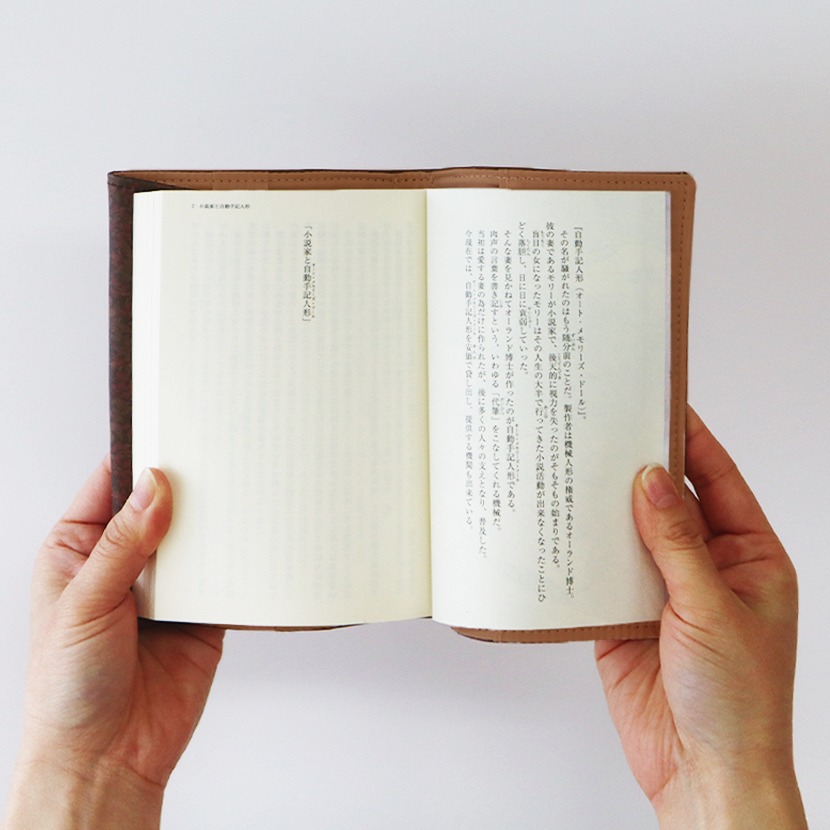 『自動手記人形（オート・メモリーズ・ドール）』。
その名が騒がれたのはもう随分前のことだ。製作者は機械人形の権威であるオーランド博士。
彼の妻であるモリーが小説家で、後天的に視力を失ったのがそもそもの始まりである。
盲目の女になったモリーはその人生の大半で行ってきた小説活動が出来なくなったことにひ
どく落胆し、日に日に衰弱していった。
そんな妻を見かねてオーランド博士が作ったのが自動手記人形である。
肉声の言葉を書き記すという、いわゆる「代筆」をこなしてくれる機械だ。
当初は愛する妻の為だけに作られたが、後に多くの人々の支えとなり、普及した。
今現在では、自動手記人形を安価で貸し出し、提供する機関も出来ている。
「小説家と自動手記人形」
小説家と自動手記人形